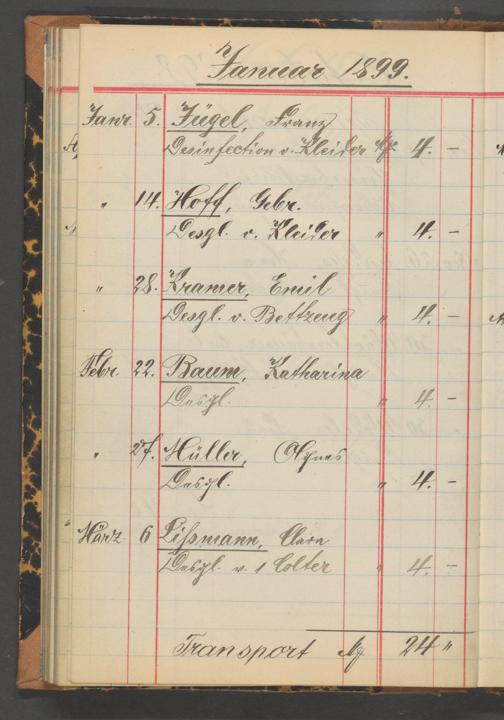 Januar 1899.
Janr. 5. Fügel, Franz
Desinfection v. Kleider M. 4. –
" 14. Hoff, Gebr.
Desgl. v. Kleider " 4. –
" 28. Kramer, Emil
Desgl. v. Bettzeug " 4. –
Febr. 22. Baum, Katharina
Desgl. " 4. –
" 27. Müller, Agnes
Desgl. " 4. –
März 6 Lißmann, Clara
Desgl. v. 1 Colter " 4. –
Transport M. 24 "